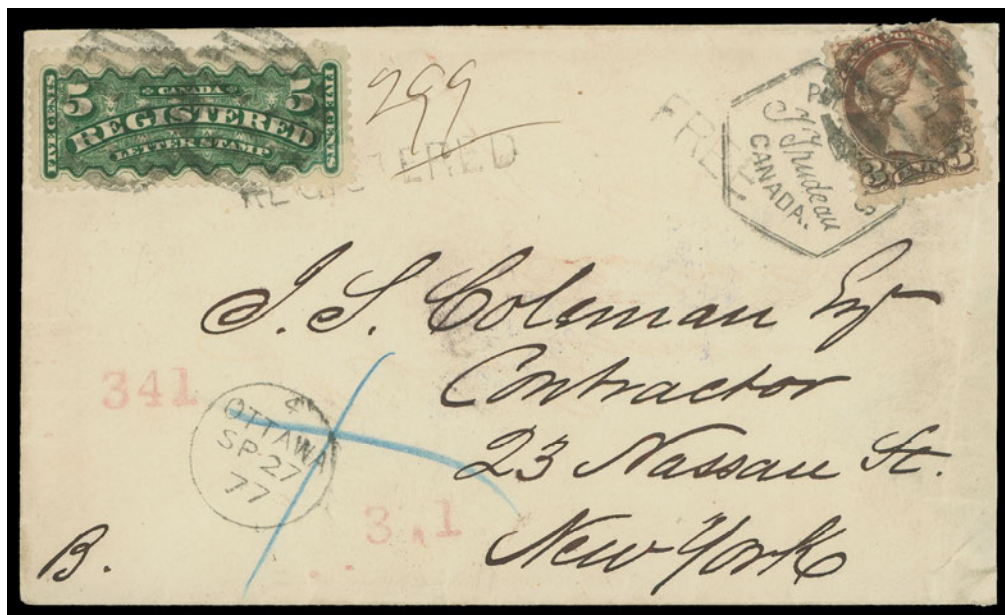 FIVE CENTS
5
CANADA
5
REGISTERED
LETTER STAMP
FIVE CENTS
299
REGISTERED
FREE
T Trudeau
CANADA.
3
3
J. S. Coleman Esq
Contractor
23 Nassau St.
New York
341
4
OTTAWA
SP 27
77
3 1
B.